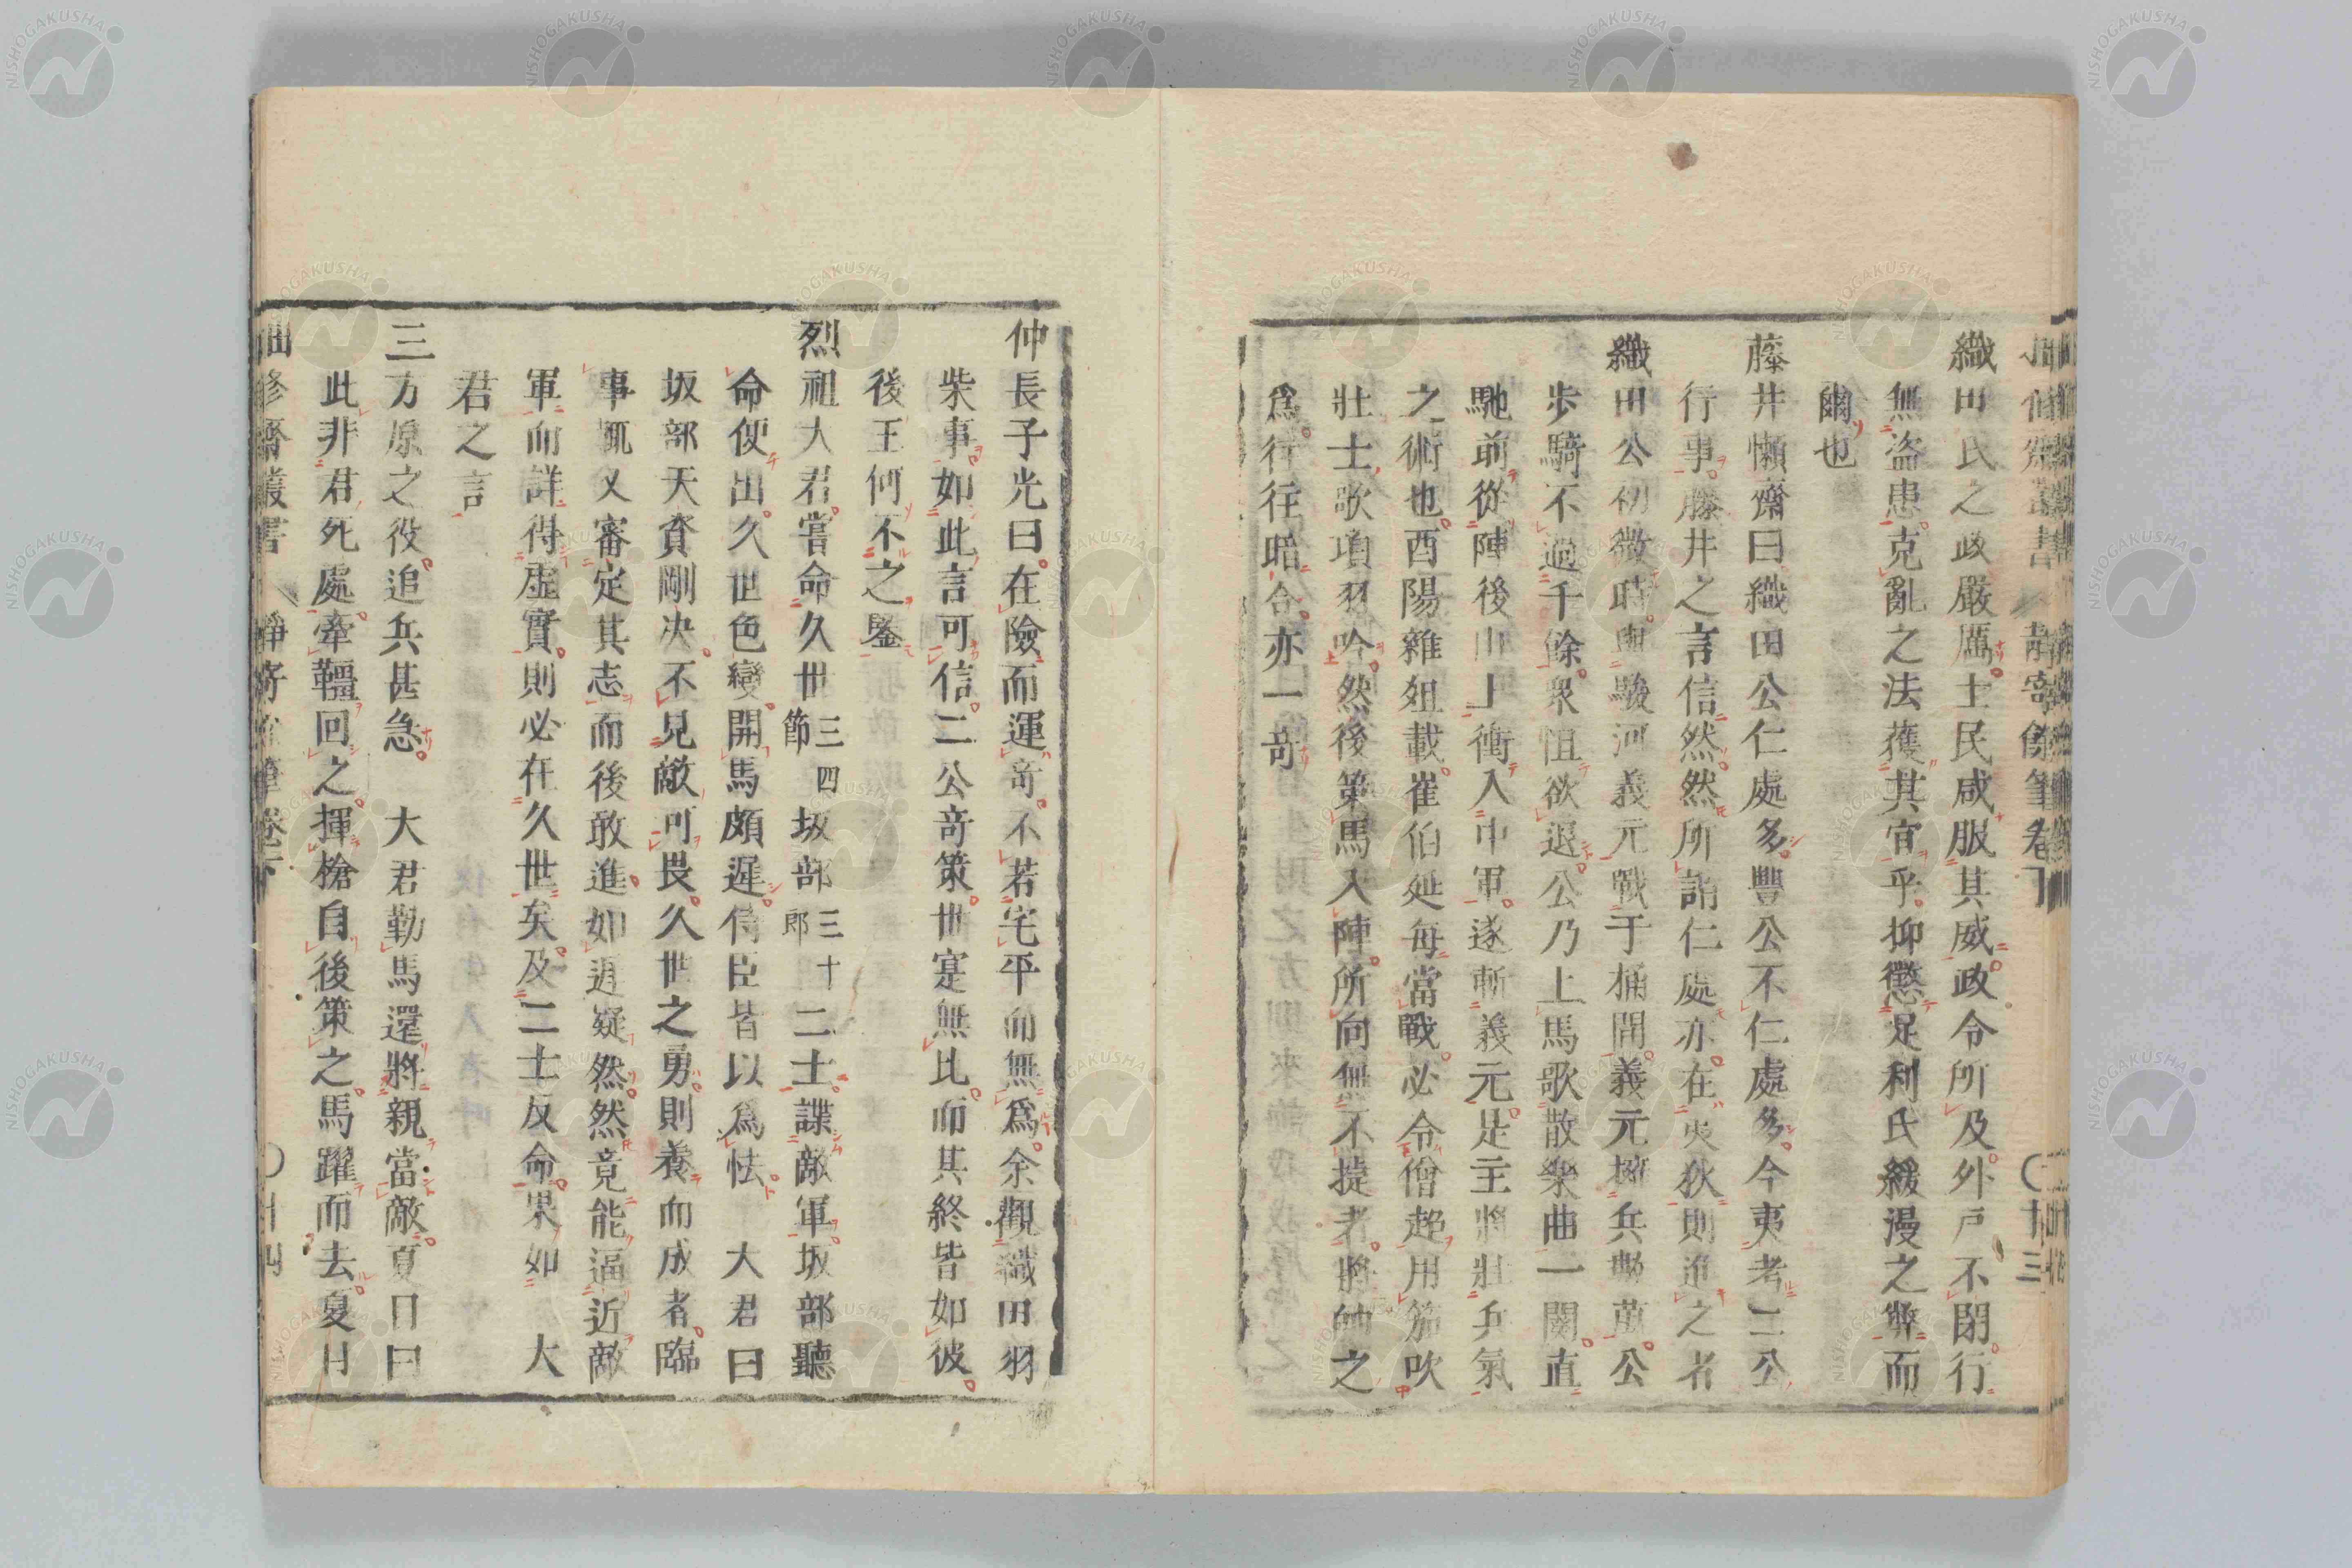 修齋叢書 靜寄餘筆卷下 〇廿三
織田氏之政嚴厲士民咸服其威政令所及外戸不閉行
無盗患克亂之法蓰其宜乎抑懲足利氏緩漫之弊而
爾也
藤井懶齋曰織田公仁處多豐公不仁處多今夷考二公
行事藤井之言信然然所謂仁處亦在夷狄則進之者
織田公初微時與駿河義元戰于桶間義元擁兵數萬公
歩騎不過千餘衆沮欲退公乃上馬歌散樂曲一闋直
馳前從陣後山上衝入中軍遂斬義元是主將壯兵氣
之術也酉陽雜俎載崔伯延毎當戰必令僧超用笳吹
壯士歌項羽吟然後策馬入陣所向無不捷者將帥之
爲行往暗合亦一奇
仲長子光曰在險而運奇不若宅平而無爲余觀織田羽
柴事如此言可信二公奇策世寔無比而其終皆如彼
後王何不之鑒
烈祖大君嘗命久世三四節坂部三十郎二士諜敵軍坂部聽
命便出久世色變開馬頗遲侍臣皆以爲怯 大君曰
坂部天資剛决不見敵可畏久世之勇則養而成者臨
事輒又審定其志而後敢進如遅疑然然竟能逼近敵
軍而詳得虚實則必在久世矣及二士反命果如 大
君之言
三方原之役追兵甚急 大君勒馬還將親當敵夏目曰
此非君死處牽韁回之揮槍自後策之馬躍而去夏目
修齋叢書 靜寄餘筆卷下 〇廿四
NISHOGAKUSHA